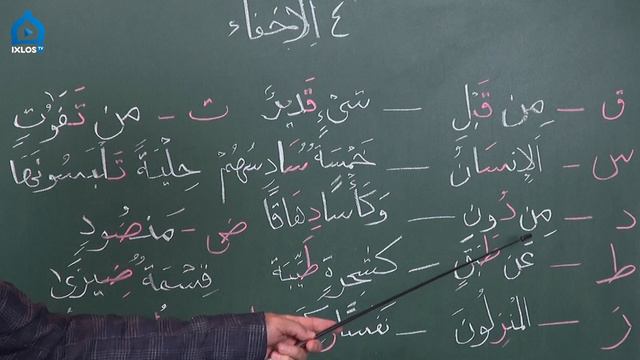 IXLOS TV
٤ اَلْاِخْفَاءْ
ق – مِن قَبْلِ – شَىْءٍ قَدِيرٌ
ت – مِن تَفَٰوُتٍ
س – اَلْاِنسَانُ – خَمْسَةٌ سَادِسُهُمْ
حِلْيَةً تَلْبَسُونَهَا
د – مِن دُونِ – وَكَأْسًا دِهَاقًا
ض – مَنضُودٍ
ط – عَن طَبَقٍ – كَشَجَرَةٍ طَيِّبَةٍ
قِسْمَةٌ ضِيزَىٰ
ز – الْمُنزِلُونَ –